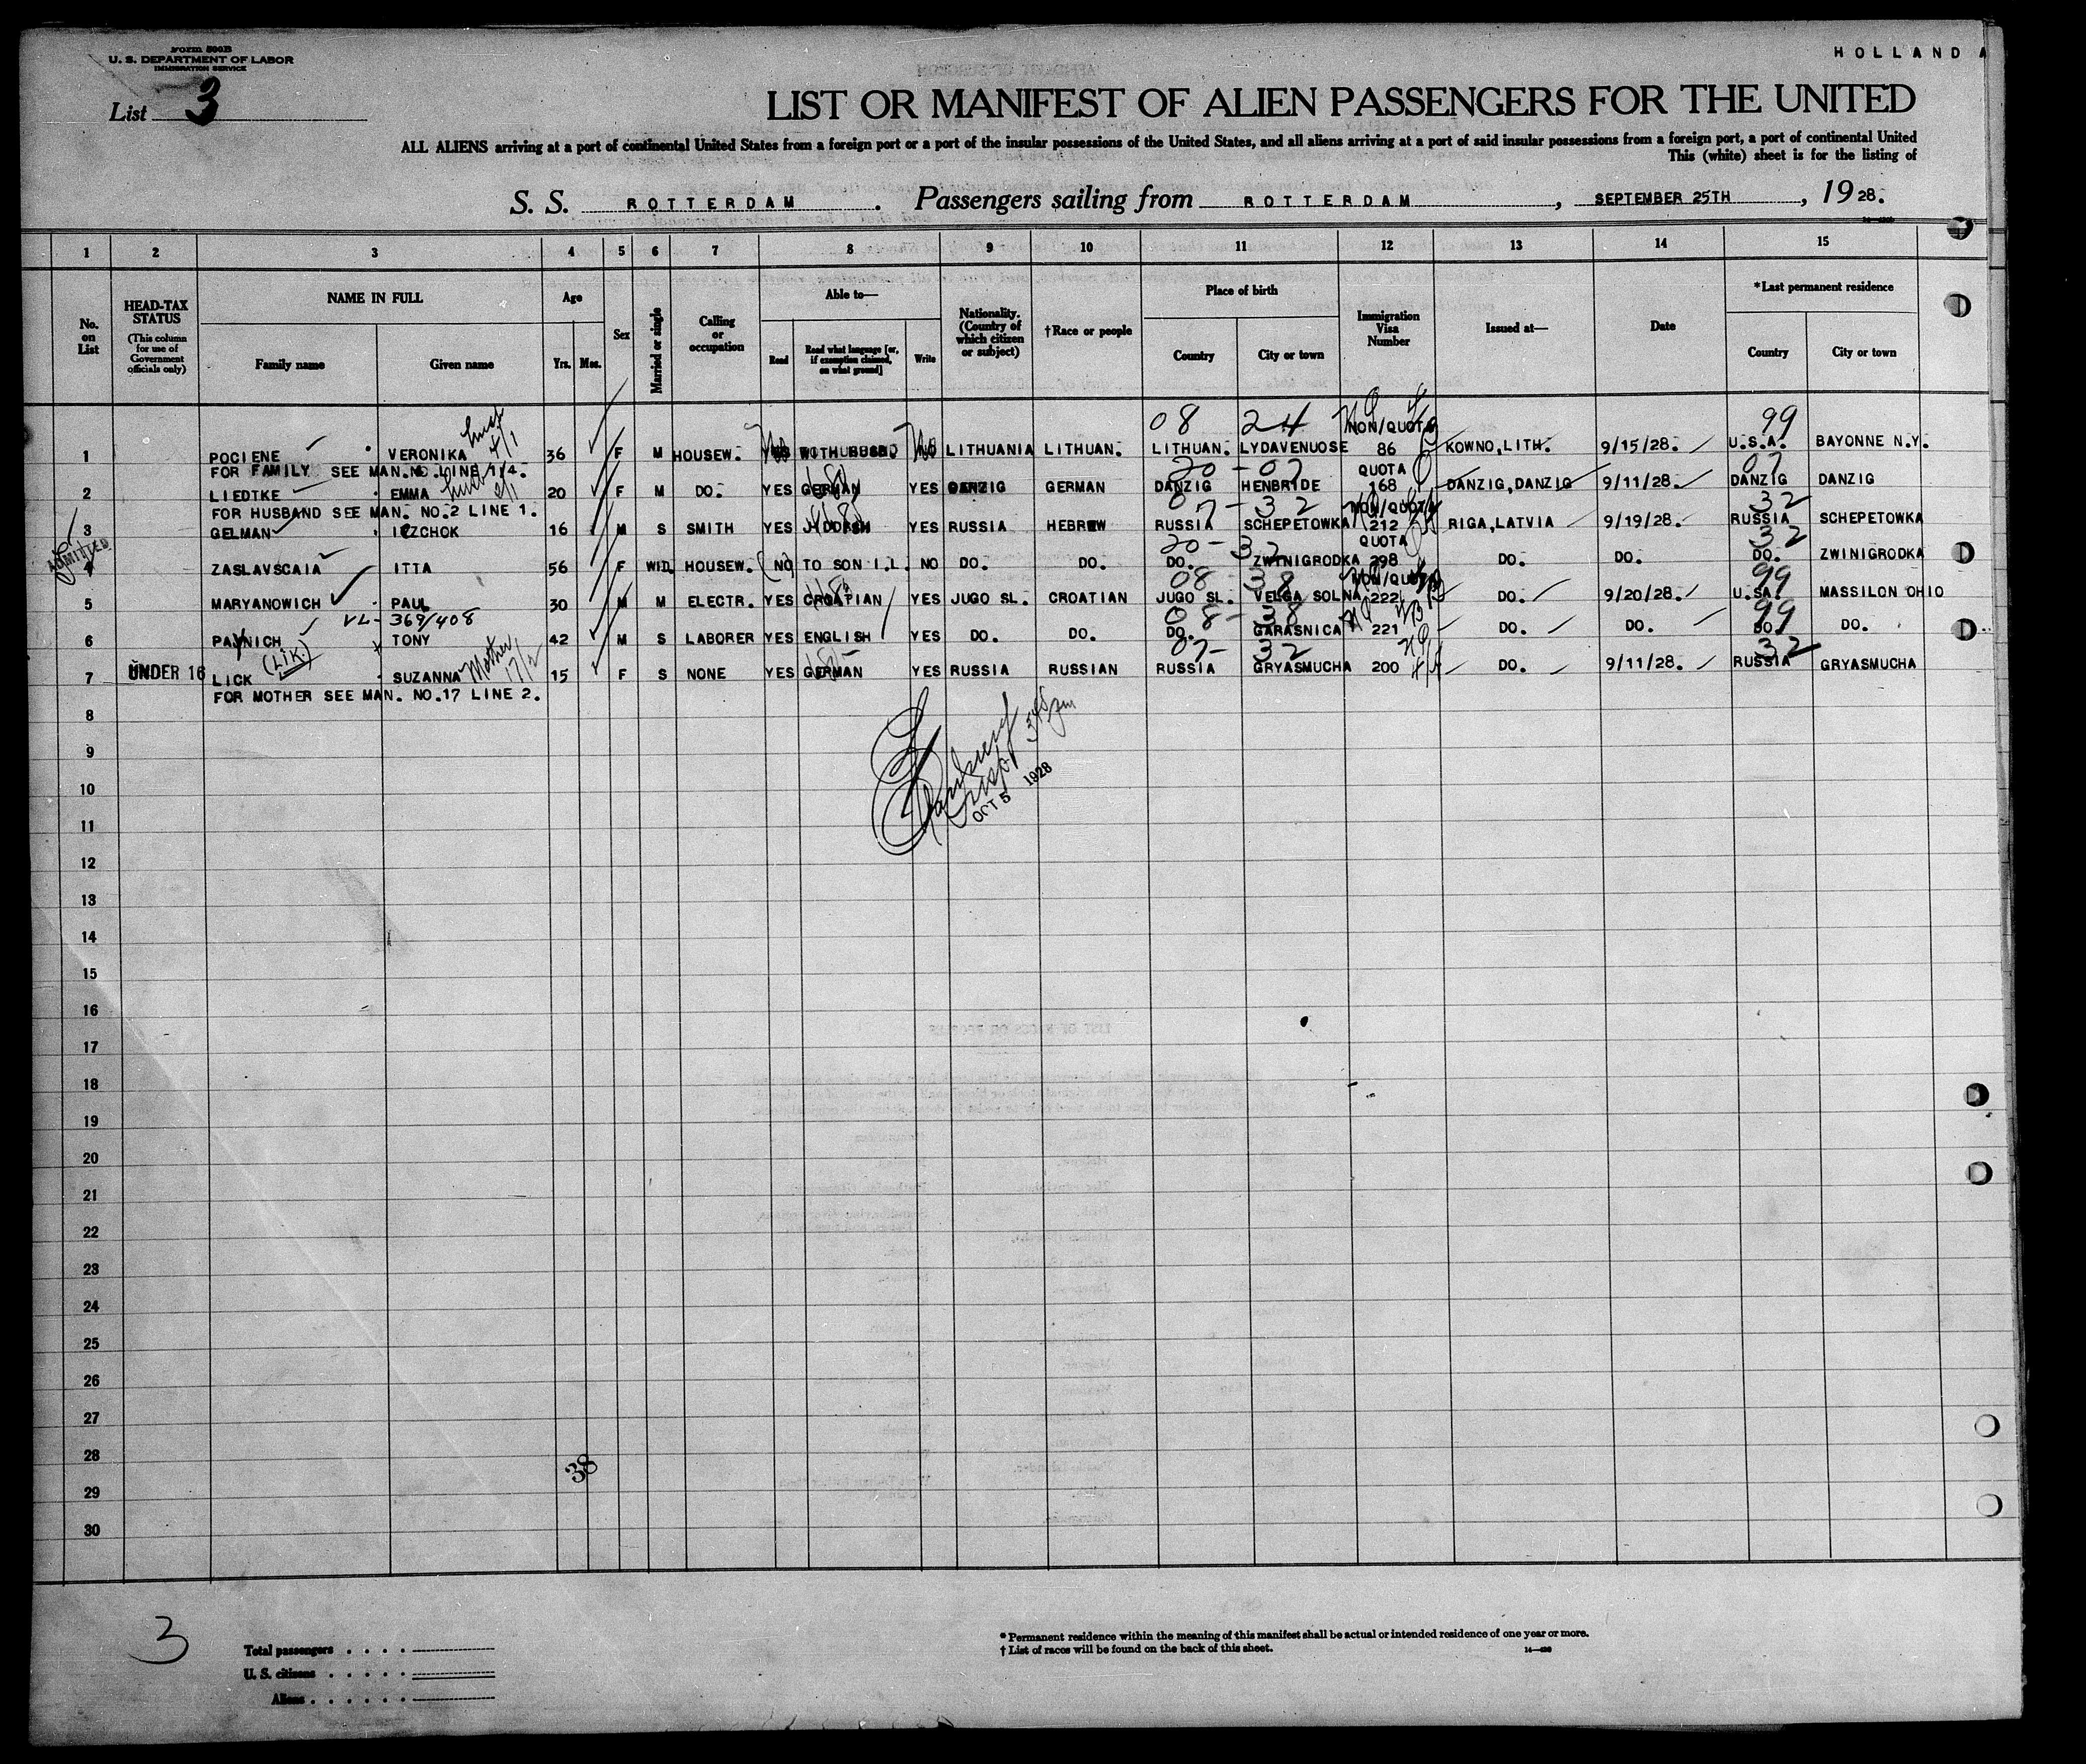 Form 500B
U. S. DEPARTMENT OF LABOR
IMMIGRATION SERVICE
HOLLAND A
List 3
LIST OR MANIFEST OF ALIEN PASSENGERS FOR THE UNITED
ALL ALIENS arriving at a port of continental United States from a foreign port or a port of the insular possessions of the United States, and all aliens arriving at a port of said insular possessions from a foreign port, a port of continental United
This (white) sheet is for the listing of
S. S. ROTTERDAM. Passengers sailing from ROTTERDAM, SEPTEMBER 25TH, 1928.
1 2 3 4 5 6 7 8 9 10 11 12 13 14 15
No. on List
HEAD-TAX STATUS (This column for use of Government officials only)
NAME IN FULL
Family name Given name
Age
Yrs. Mos.
Sex
Married or single
Calling or occupation
Able to—
Read Read what language [or, if exemption claimed, on what ground] Write
Nationality. (Country of which citizen or subject)
†Race or people
Place of birth
Country City or town
Immigration Visa Number
Issued at—
Date
*Last permanent residence
Country City or town
08 24 NON/QUOTA 99
1 POCIENE VERONIKA 36 F M HOUSEW. No No LITHUANIA LITHUAN. LITHUAN. LYDAVENUOSE 86 KOWNO,LITH. 9/15/28. U.S.A. BAYONNE N.Y.
FOR FAMILY SEE MAN. LINE 1/4. 20-07 QUOTA 07
2 LIEDTKE EMMA 20 F M DO. YES GERMAN YES DANZIG GERMAN DANZIG HENBRIDE 168 DANZIG,DANZIG 9/11/28. DANZIG DANZIG
FOR HUSBAND SEE MAN. NO.2 LINE 1. 07-32 NON/QUOTA 32
3 GELMAN ICZCHOK 16 M S SMITH YES JIDDISH YES RUSSIA HEBREW RUSSIA SCHEPETOWKA 212 RIGA,LATVIA 9/19/28. RUSSIA SCHEPETOWKA
ADMITTED 20-32 QUOTA 32
4 ZASLAVSCAIA ITTA 56 F WID. HOUSEW. NO TO SON I.L. NO DO. DO. DO. ZWINIGRODKA 298 DO. DO. DO. ZWINIGRODKA
08-38 NON/QUOTA 99
5 MARYANOWICH PAUL 30 M M ELECTR. YES CROATIAN YES JUGO SL. CROATIAN JUGO SL. VELGA SOLNA 222 DO. 9/20/28. U.SA MASSILON OHIO
VL- 369/408 08-38 99
6 PAYNICH TONY 42 M S LABORER YES ENGLISH YES DO. DO. DO. GARASNICA 221 DO. DO. DO. DO.
(LIK.) Mother 17/2 07-32 32
UNDER 16
7 LICK SUZANNA 15 F S NONE YES GERMAN YES RUSSIA RUSSIAN RUSSIA GRYASMUCHA 200 DO. 9/11/28. RUSSIA GRYASMUCHA
FOR MOTHER SEE MAN. NO.17 LINE 2.
8
9
OCT 5 1928
10
11
12
13
14
15
16
17
18
19
20
21
22
23
24
25
26
27
28
38
29
30
3
Total passengers
U. S. citizens
Aliens
* Permanent residence within the meaning of this manifest shall be actual or intended residence of one year or more.
† List of races will be found on the back of this sheet.